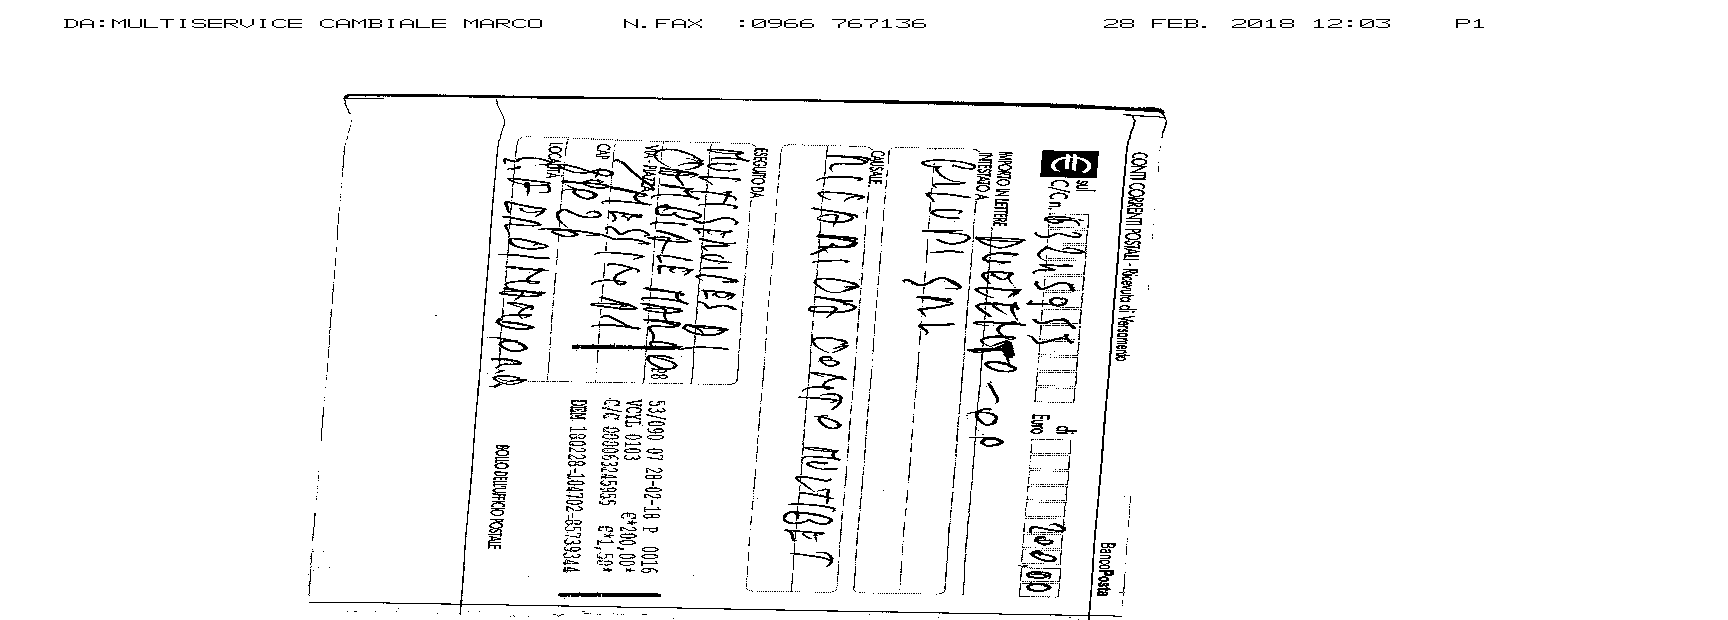 DA:MULTISERVICE CAMBIALE MARCO N.FAX :0966 767136 28 FEB. 2018 12:03 P1
CONTI CORRENTI POSTALI - Ricevuta di Versamento BancoPosta
sul C/C n. 63245955 di Euro 200,00
IMPORTO IN LETTERE DUECENTO-00
INTESTATO A
SRL
CAUSALE
RICARICA CONTO MULTIBET
ESEGUITO DA
MULTISERVICES DI
CAMBIALE MARCO
VIA - PIAZZA
CAP
LOCALITÀ
53/090 07 28-02-18 P 0016
VCYL 0103 €*200,00*
C/C 000063245955 €*1,50*
DEM 180228-104702-85739344
BOLLO DELL'UFFICIO POSTALE